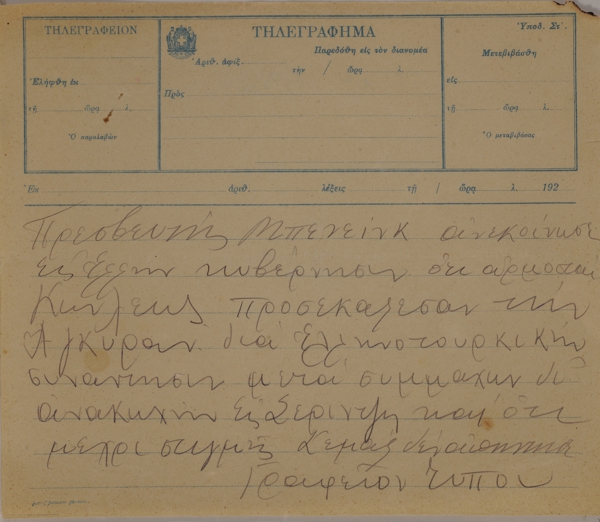 ΤΗΛΕΓΡΑΦΕΙΟΝ
Ἐλήφθη ἐκ
τῇ ὥρᾳ λ.
Ὁ παραλαβών
ΤΗΛΕΓΡΑΦΗΜΑ
Παρεδόθη εἰς τὸν διανομέα
Ἀριθ. ἀφίξ. τὴν / ὥρᾳ λ.
Πρὸς
Ὑποδ. Στ΄.
Μετεβιβάσθη
εἰς
τῇ ὥρᾳ λ.
Ὁ μεταβιβάσας
Ἐκ ἀριθ. λέξεις τῇ / ὥρᾳ λ. 192
Πρεσβευτής Μπενεινκ ανεκοίνωσε
εις κυβέρνησιν ότι αρμοσταί
Κων/λεως προσεκάλεσαν την
Άγκυραν διά Ελληνοτουρκικήν
συνάντησιν μετά συμμάχων δι
ανακωχήν εις και ότι
μέχρι στιγμής Κεμάλ
Γραφείον Τύπου